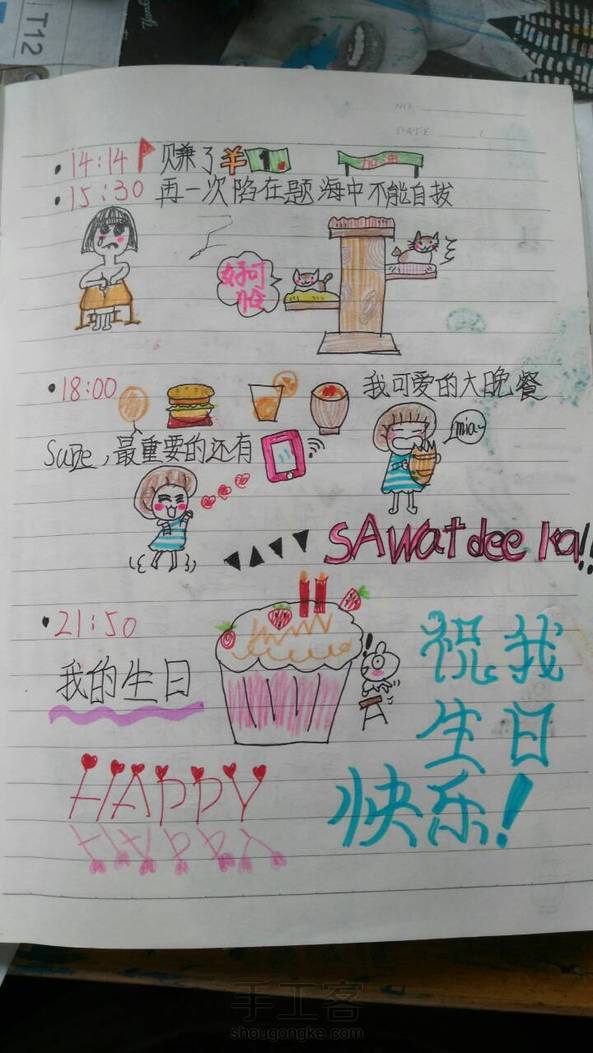 T12
NO.
DATE
14:14 赚了¥1
加油
15:30 再一次陷在题海中不能自拔
好可怜
18:00 我可爱的大晚餐
supe,最重要的还有
mia~
SAWatdee ka!!
21:50
我的生日
!
祝我
生日
快乐!
HAPPY
HAPPY
手工客
shougongke.com